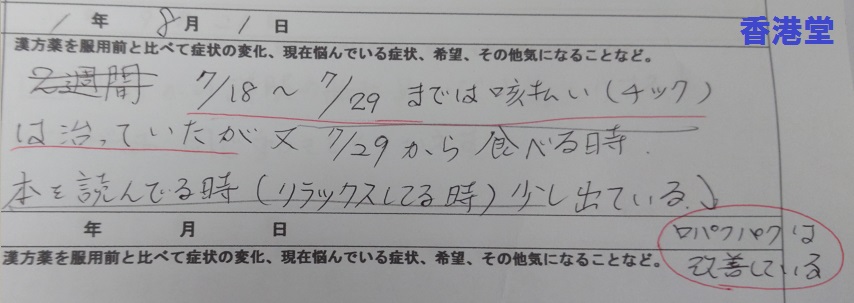 香港堂
年 8月 1日
漢方薬を服用前と比べて症状の変化、現在悩んでいる症状、希望、その他気になることなど。
2週間 7/18 〜 7/29 までは咳払い(チック)
は治っていたが又 7/29から 食べる時.
本を読んでる時(リラックスしてる時)少し出ている。↓
年 月 日
口パクパクは
漢方薬を服用前と比べて症状の変化、現在悩んでいる症状、希望、その他気になることなど。
改善している